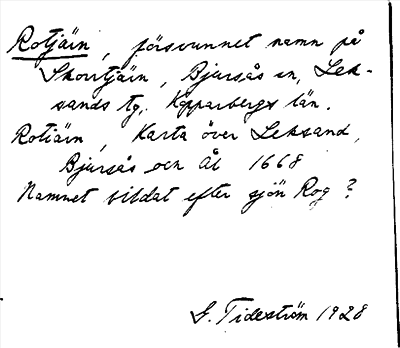 Rotjärn, försvunnet namn på
Skovtjärn, Bjursås sn, Lek-
sands tg. Kopparbergs län.
Rotiärn, Karta över Leksand,
Bjursås och Ål 1668
Namnet bildat efter sjön Rog?
G. Tideström 1928